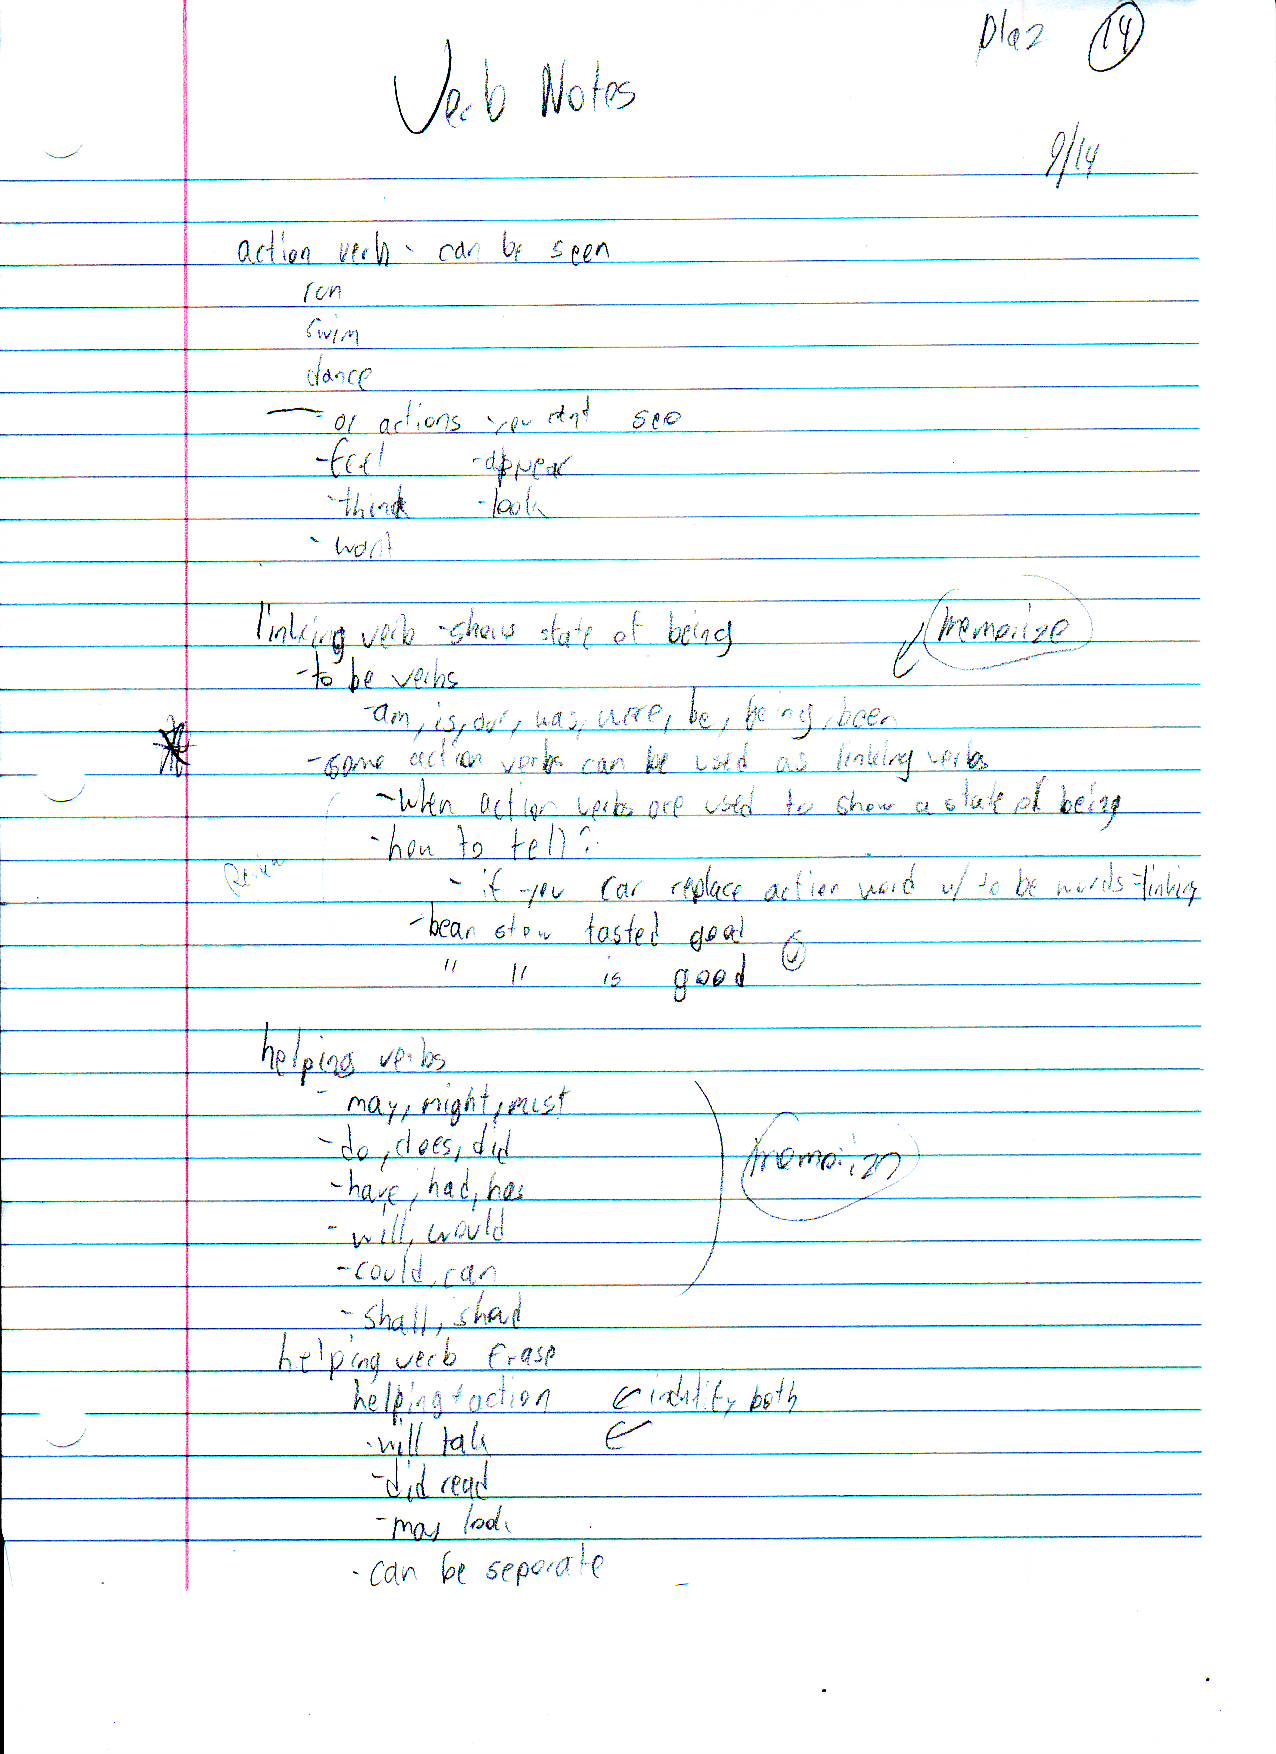 Diaz 14
Verb Notes
9/14
action verb - can be seen
run
swim
dance
- or actions you cant see
-feel -appear
-think -look
- want
linking verb -shows state of being memorize
-to be verbs
-am, is, are, was, were, be, being, been
-some action verbs can be used as linking verbs
-when action verbs are used to show a state of being
-how to tell?
- if you can replace action word w/ to be words = linking
-bean stew tasted good
" " is good
helping verbs
- may, might, must
-do, does, did
-have, had, has
- will, would
-could, can
- shall,
helping verb
helping + action both
-will talk
-did read
-may look
-can be separate